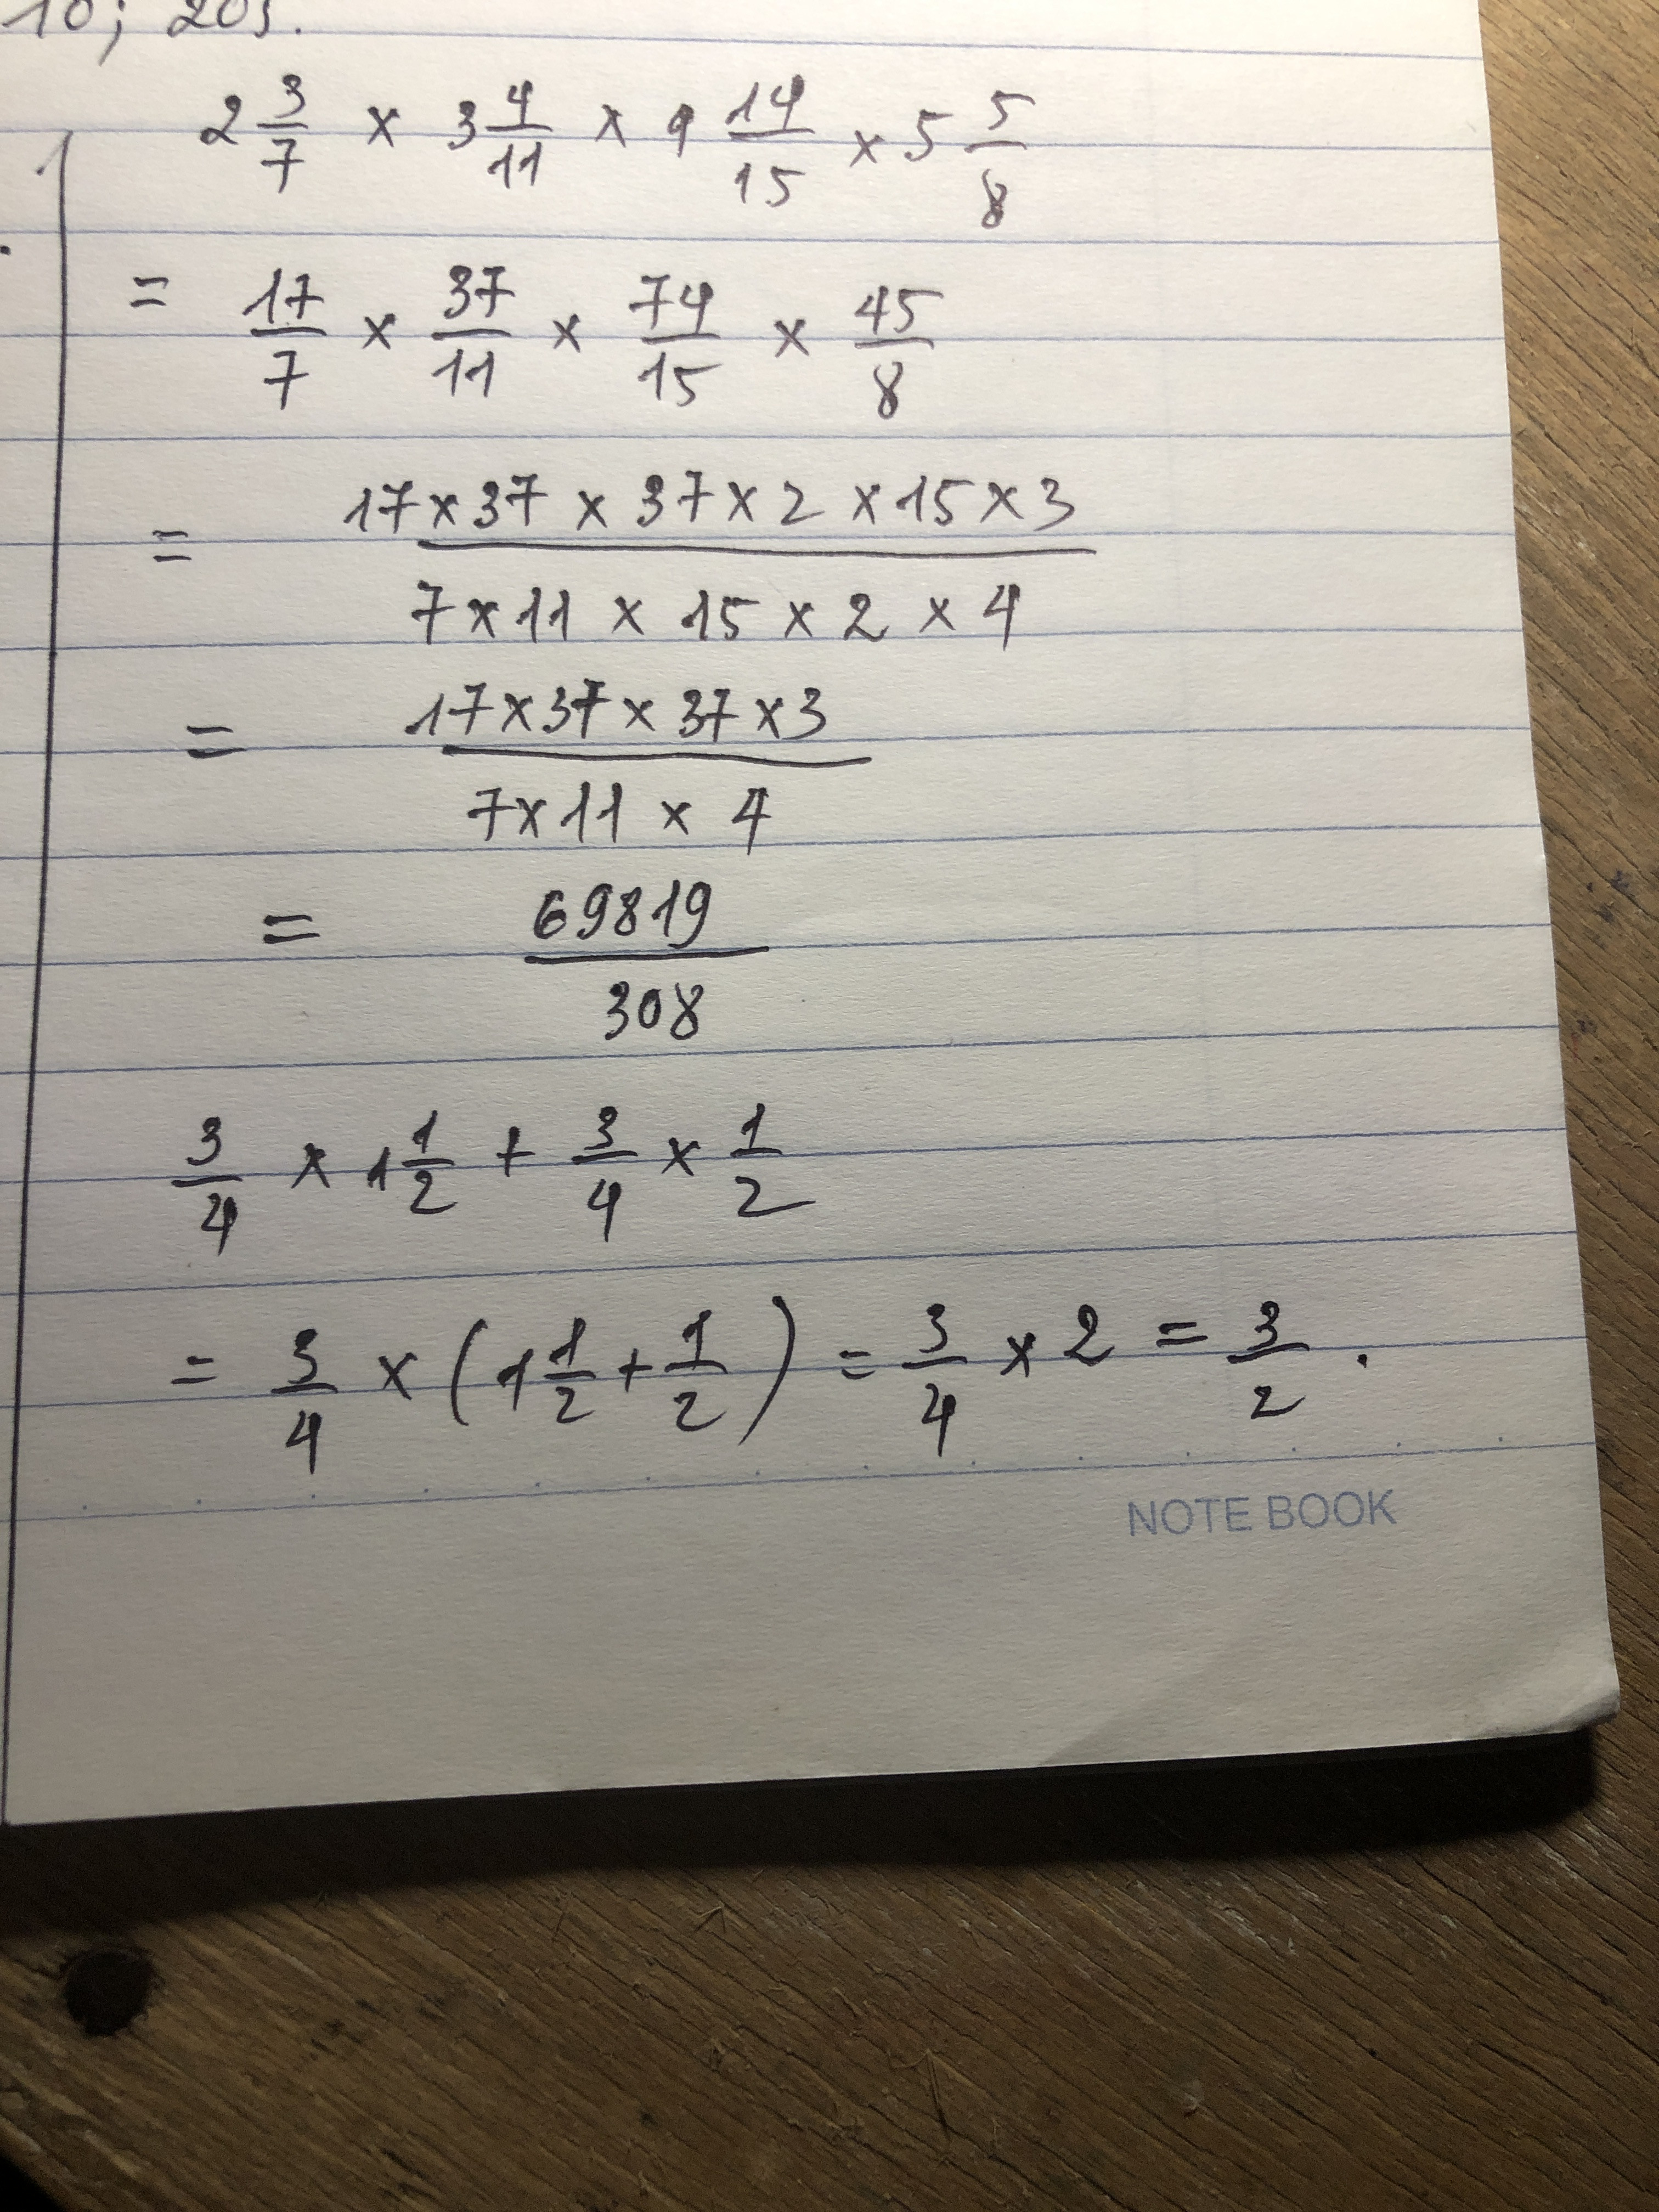 10; 20}.
2 3/7 × 3 4/11 × 4 14/15 × 5 5/8
= 17/7 × 37/11 × 74/15 × 45/8
= 17×37 × 37×2 ×15×3 / 7×11 × 15 × 2 × 4
= 17×37× 37×3 / 7×11 × 4
= 69819 / 308
3/4 × 1 1/2 + 3/4 × 1/2
= 3/4 × (1 1/2 + 1/2) = 3/4 × 2 = 3/2 .
NOTE BOOK